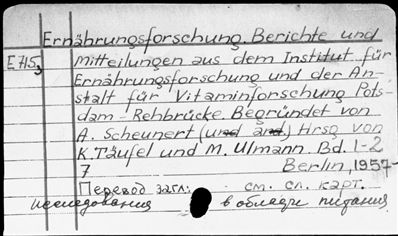 Ernährungsforschung. Berichte und
E 715, Mitteilungen aus dem Institut für
Ernährungsforschung und der An-
stalt für Vitaminforschung Pots-
dam - Rehbrücke. Begründet von
A. Scheunert (und and.) Hrsg. von
K. Täufel und M. Ulmann. Bd. 1-2
7 Berlin, 1957-
Перевод загл.: см. сл. карт.
исследования в области питания